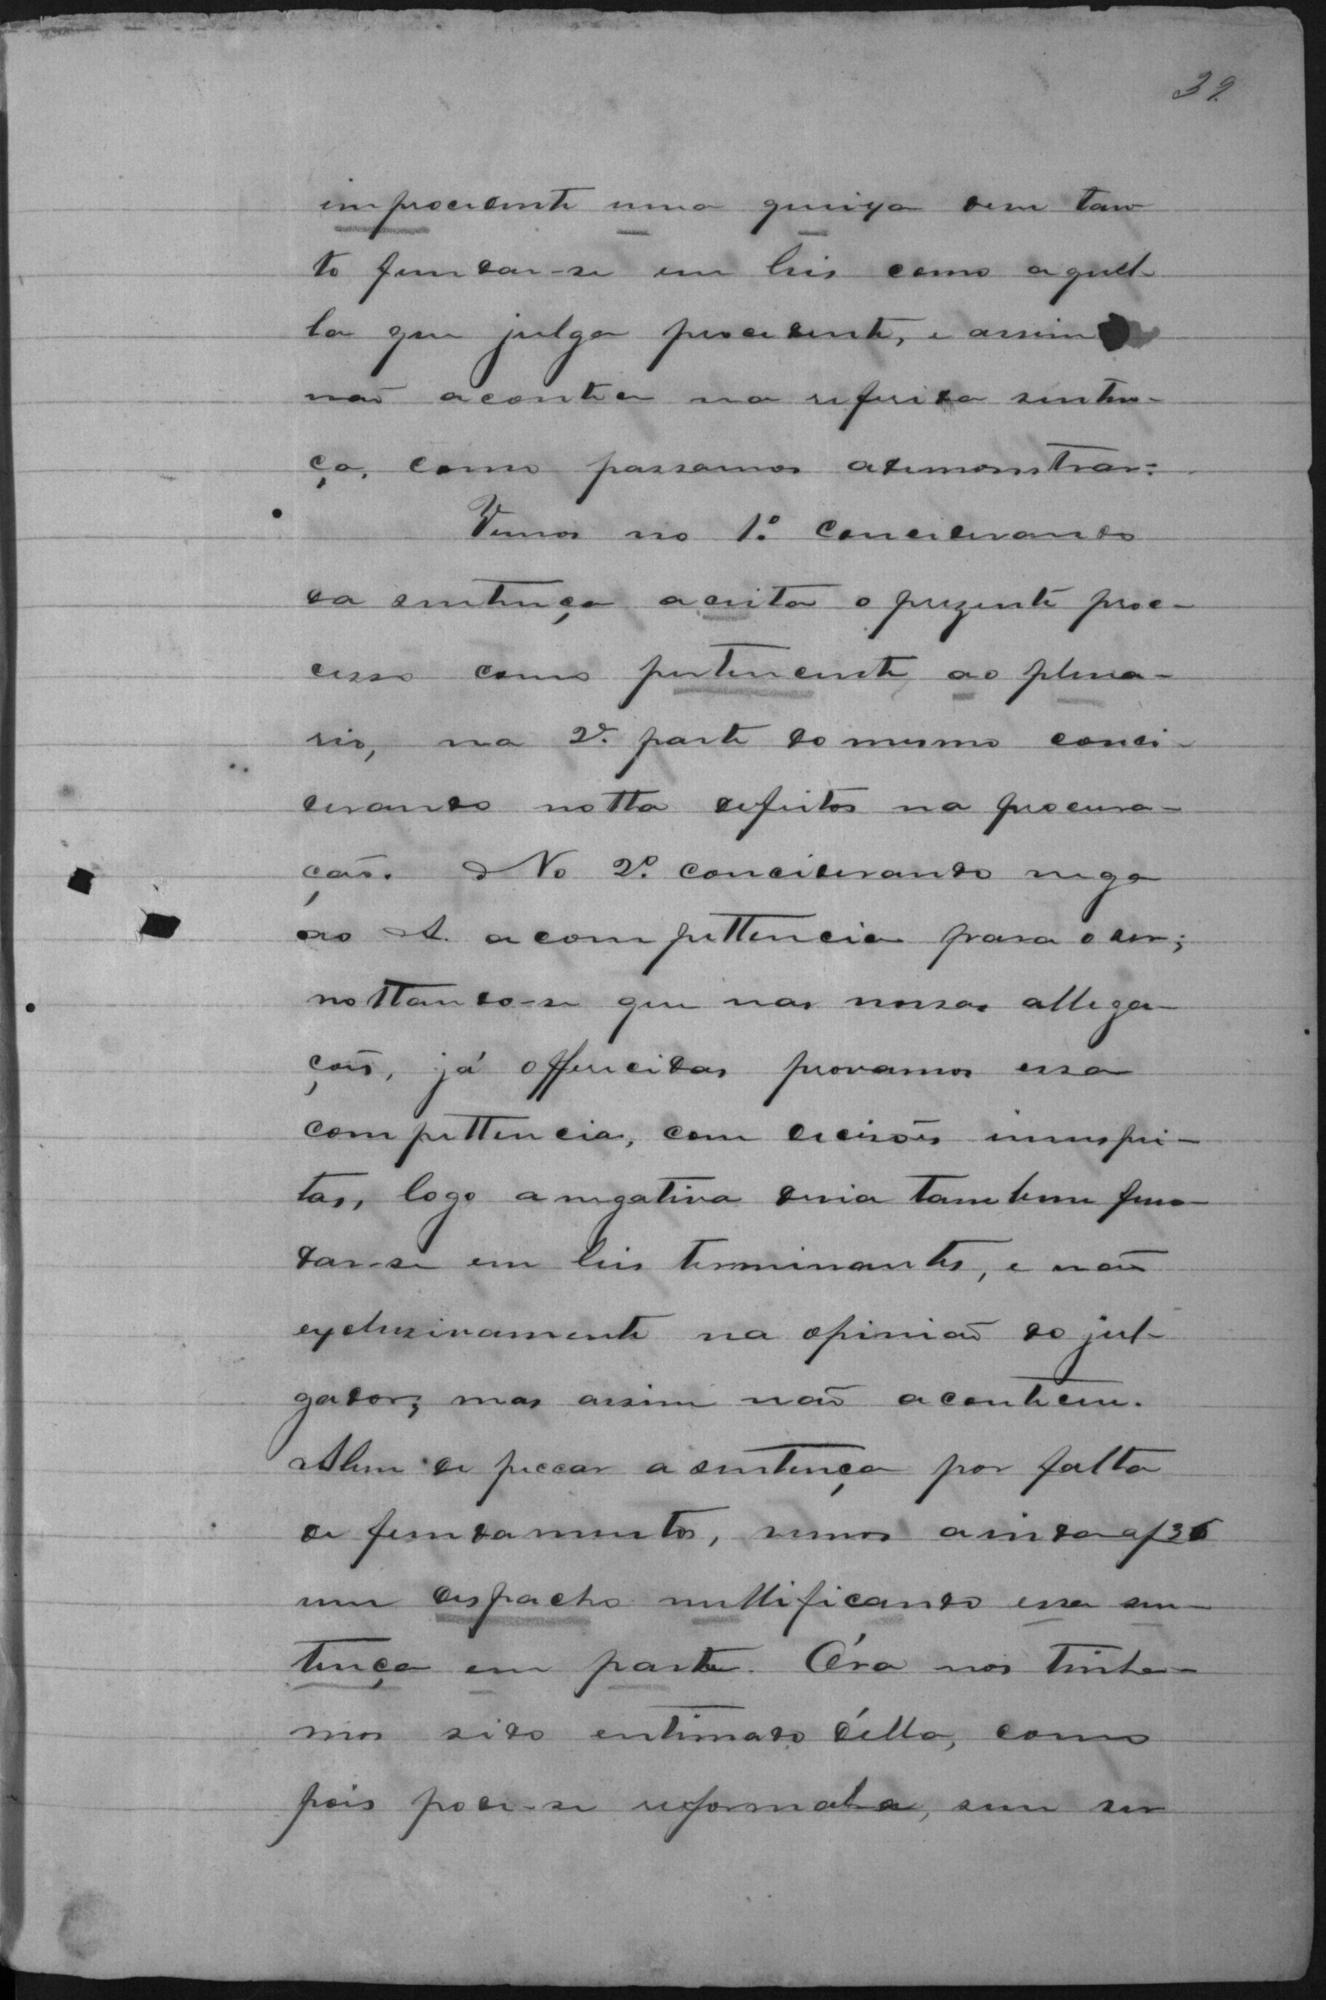 39.
improcedente uma queixa deve tan
to fundar-se em leis como aquel-
la que julga procedente, e assim
não acontece na referida senten-
ça, como passamos ademonstrar:
Vemos no 1º conciderando
da sentença aceita o prezente proc-
cesso como pertencente ao plena-
rio, na 2ª parte do mesmo conci-
derando notta defeitos na procura-
ção. No 2º conciderando nega
ao A. acompettencia para o ser;
nottando-se que nas nossas allega-
ções, já offerecidas provamos essa
compettencia, com decisões insuspei-
tas, logo a negativa devia tambem fun-
dar-se em leis terminantes, e não
excluzivamente na opinião do jul-
gador; mas assim não acontecem.
Alem de peccar a sentença por falta
de fundamentos, vemos ainda af 36
um despacho nullificando essa sen-
tença em parte. Óra nos tinha-
mos sido entimado d'ella, como
pois pode-se reformal-a, sem ser